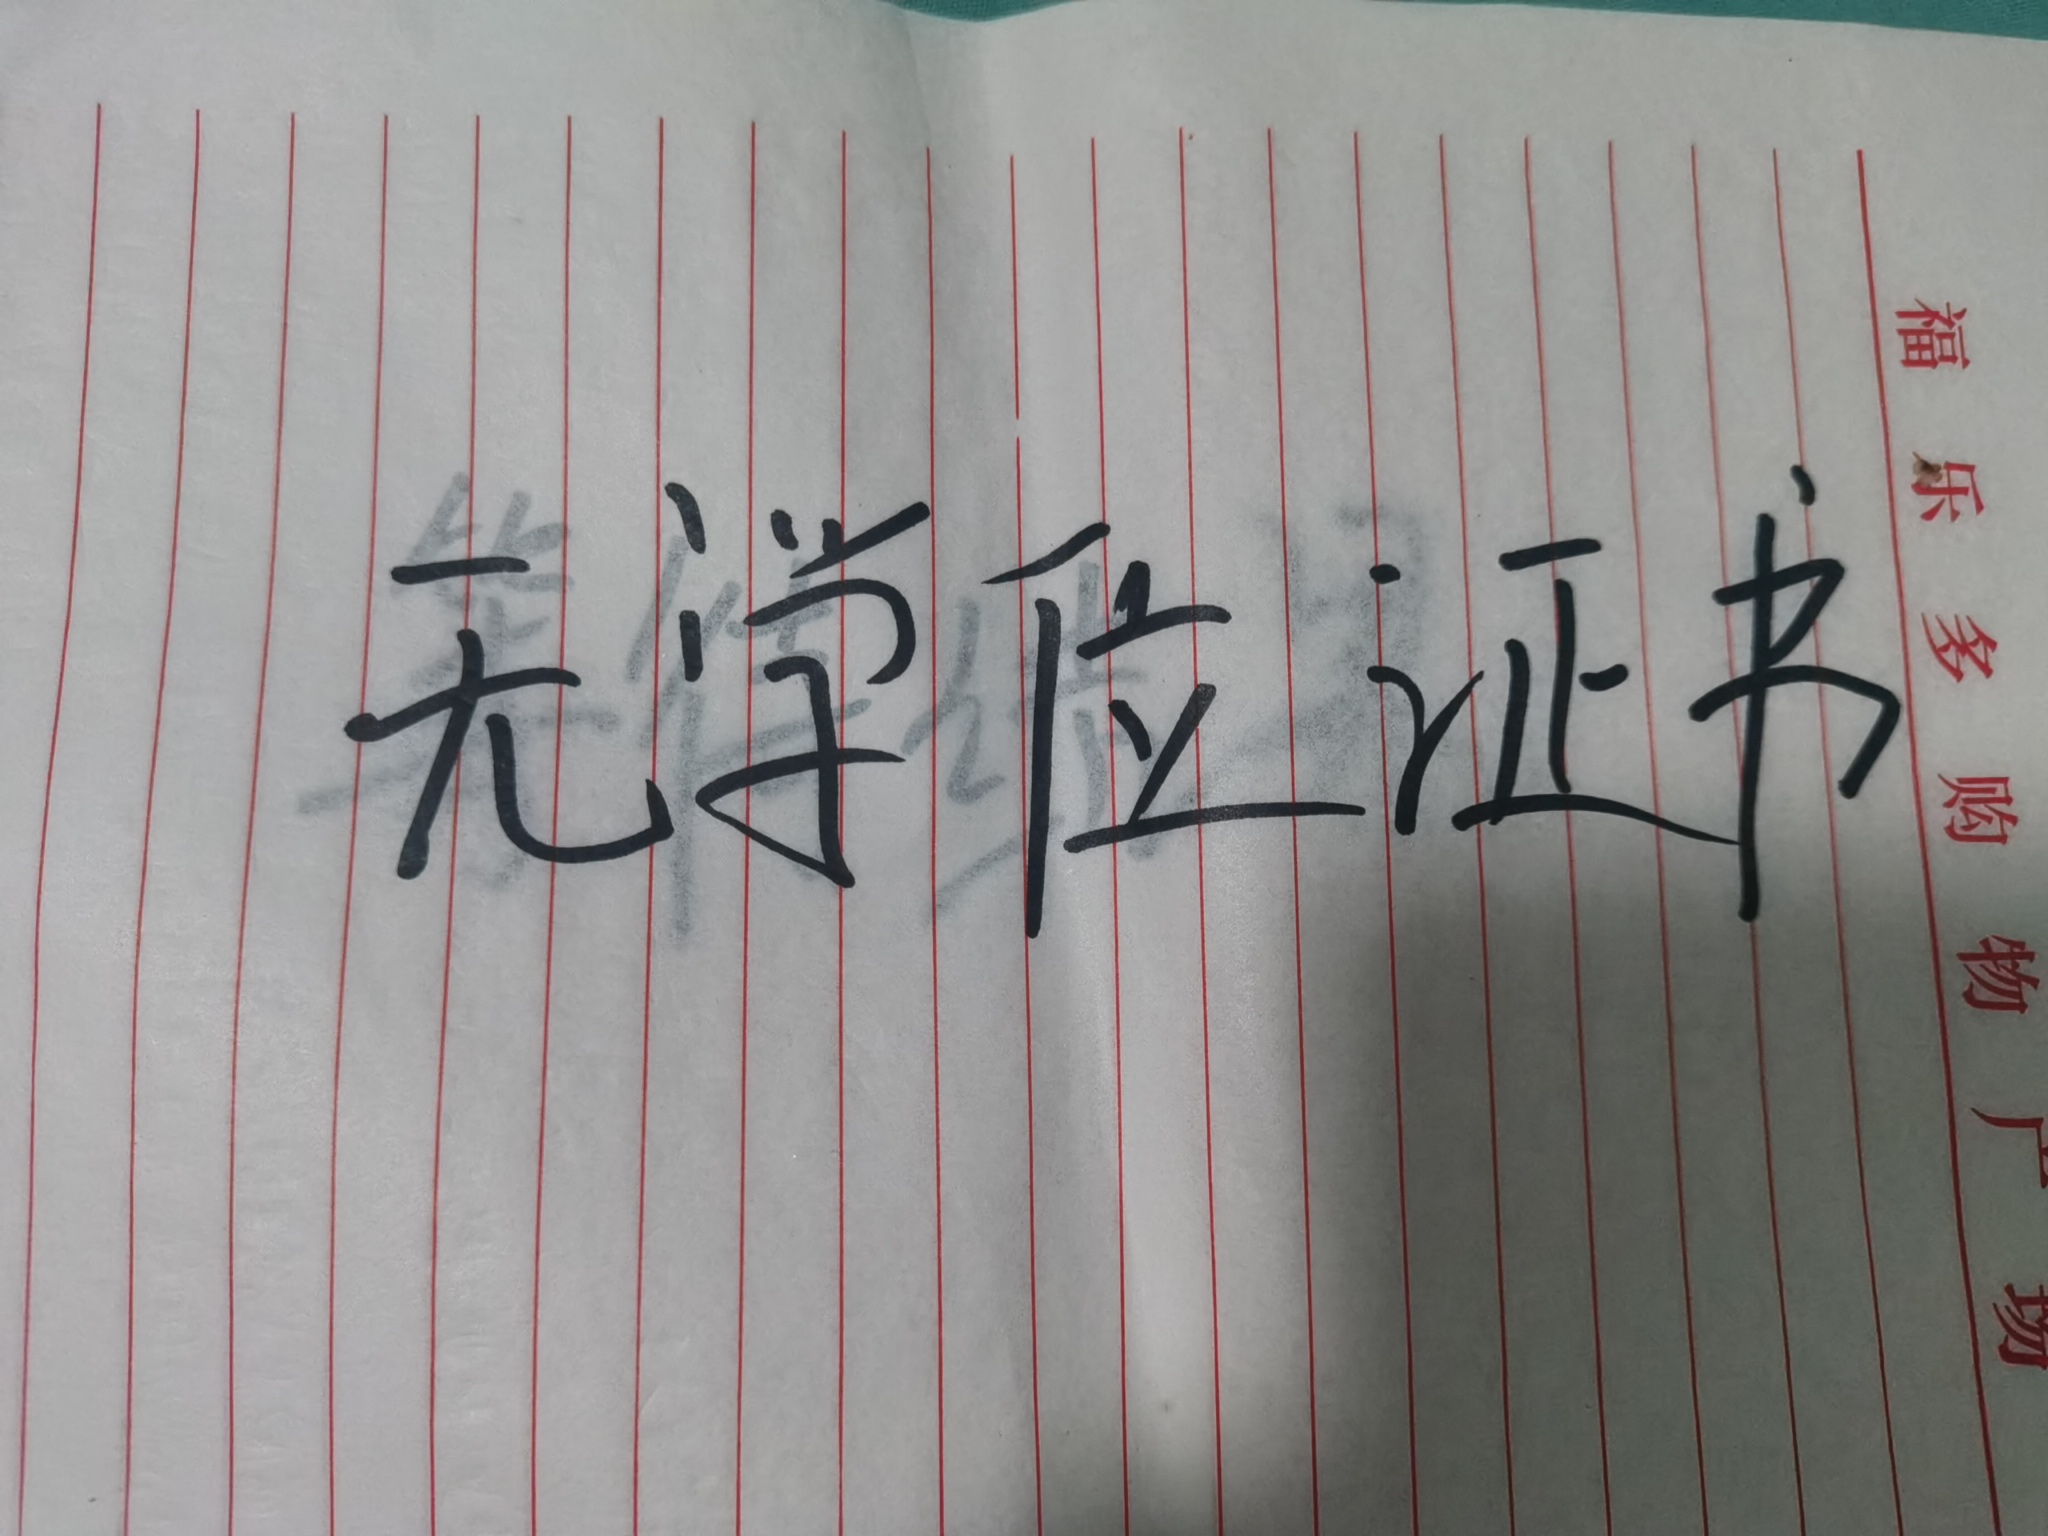 无学位证书
福乐多购物广场